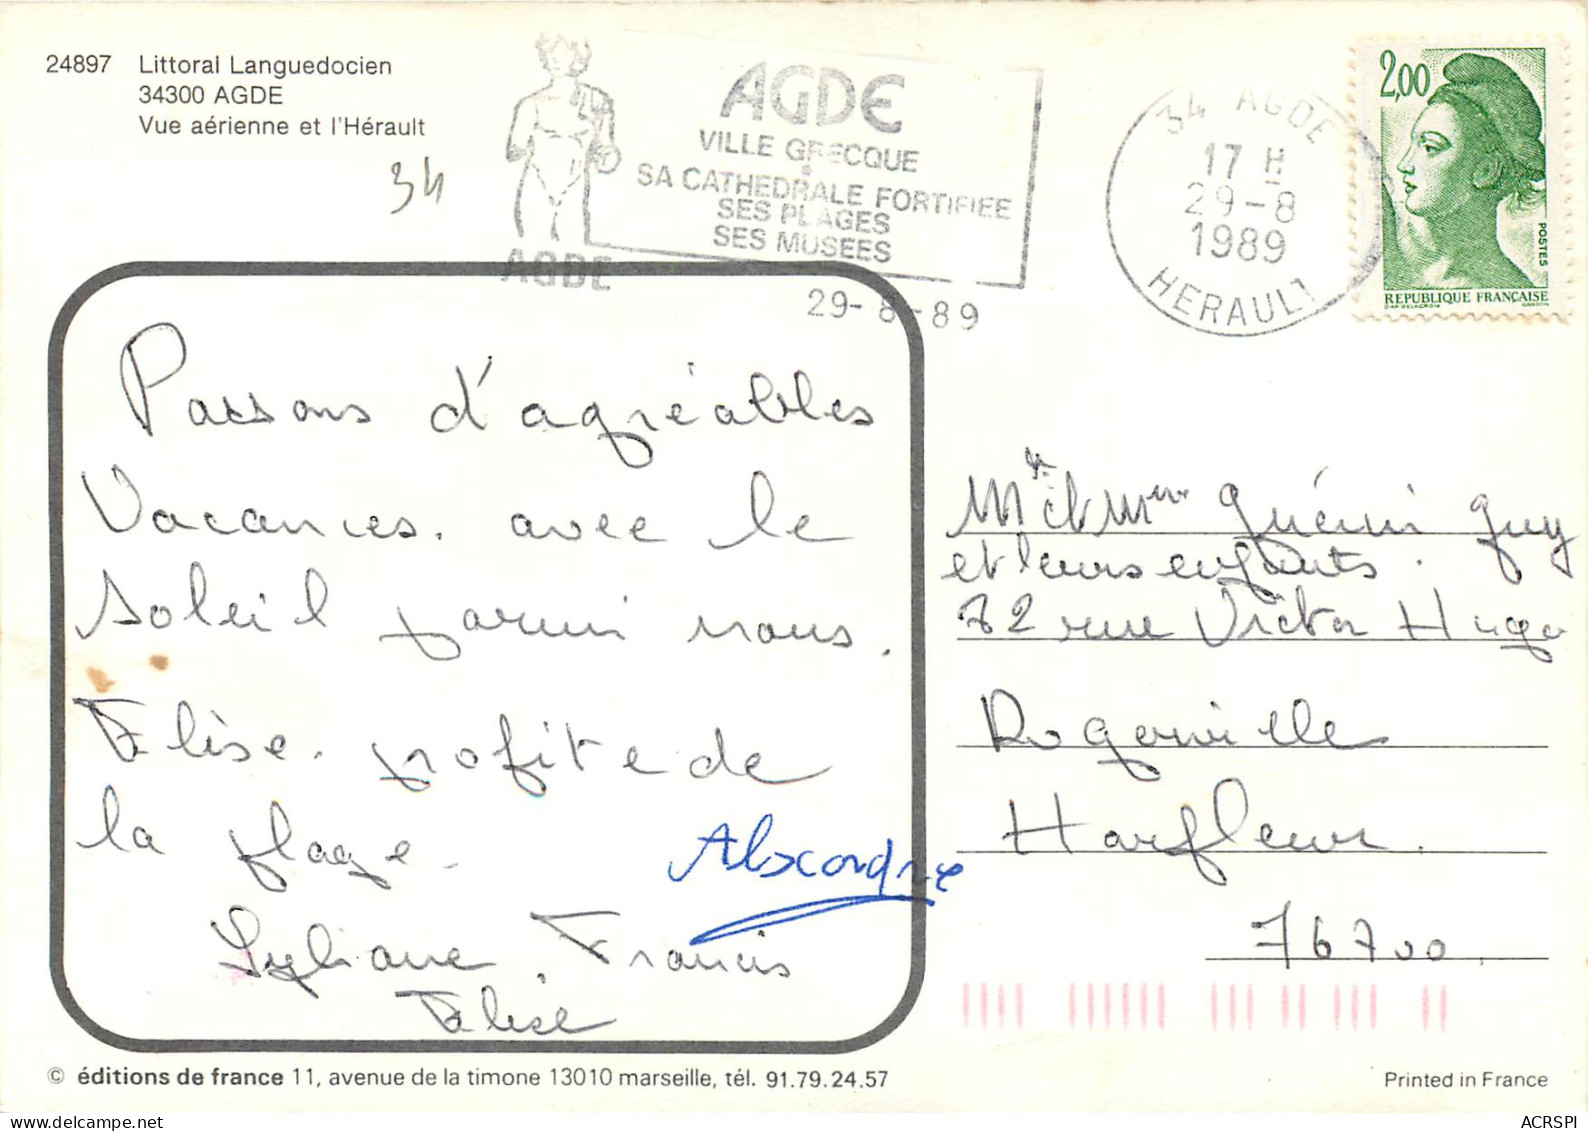 24897 Littoral Languedocien
34300 AGDE
Vue aérienne et l'Hérault
34
AGDE
AGDE
VILLE GRECQUE
SA CATHEDRALE FORTIFIEE
SES PLAGES
SES MUSEES
29-8-89
34 AGDE
17 H
29-8
1989
HERAULT
2,00
POSTES
REPUBLIQUE FRANÇAISE
Passons d'agréables
Vacances. avec le
soleil parmi nous.
Elise. profite de
la plage.
Lyliane, Francis
Elise
Mr et Mme Guérin Guy
et leurs enfants.
72 rue Victor Hugo
Rogerville
Harfleur.
76700.
© éditions de france 11, avenue de la timone 13010 marseille, tél. 91.79.24.57
Printed in France
ACRSPI